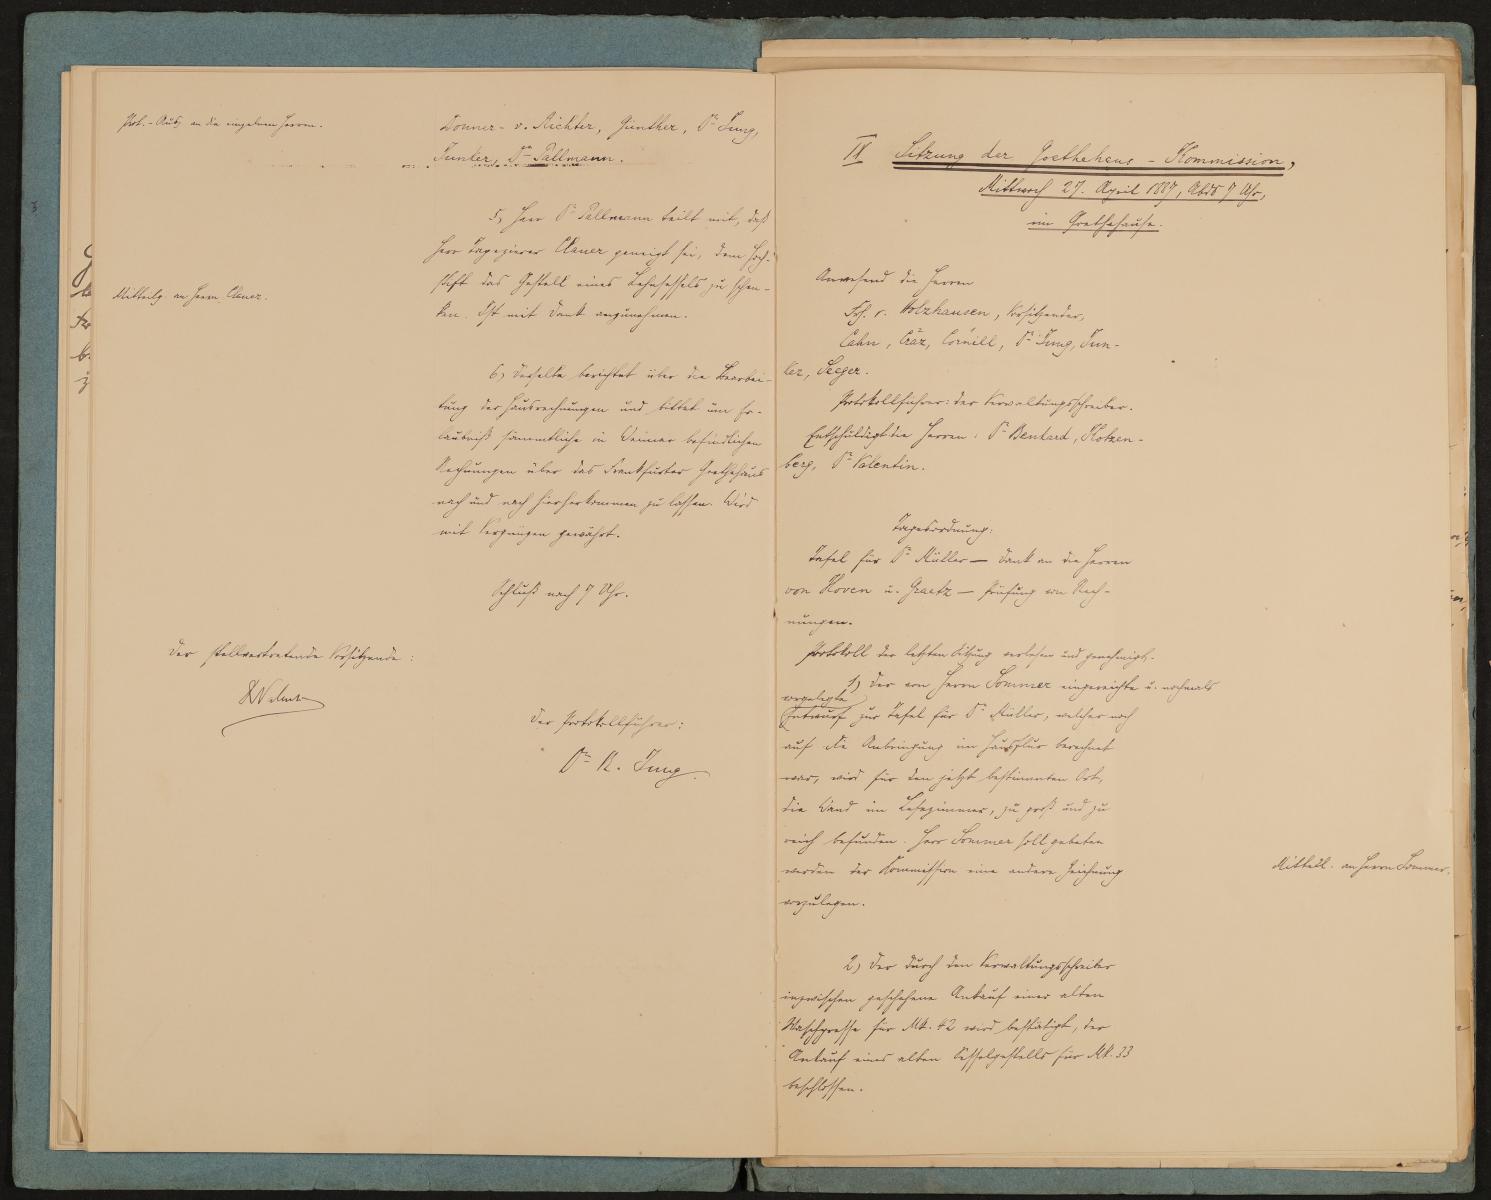 Prot.-Ausz. an die einzelnen Herren.
Donner - v. Richter, Günther, Dr. Jung,
Junker, Dr. Pallmann.
5, Herr Dr. Pallmann teilt mit, daß
Herr Tapezierer Clauer geneigt sei, dem Hoch-
stift das Gestell eines Lehnsessels zu schen-
ken. Ist mit Dank anzunehmen.
Mitteilg. an Herrn Clauer.
6, Derselbe berichtet über die Bearbei-
tung der Hausrechnungen und bittet um Er-
laubniß sämmtliche in Weimar befindlichen
Rechnungen über das Frankfurter Goethehaus
nach und nach hierherkommen zu lassen. Wird
mit Vergnügen gewährt.
Schluß nach 7 Uhr.
Der stellvertretende Vorsitzende:
Der Protokollführer:
Dr. R. Jung.
Sitzung der Goethehaus - Kommission,
Mittwoch 27. April 1887, Abds 7 Uhr,
im Goethehause.
Anwesend die Herren
Frh. v. Holzhausen, Vorsitzender,
Cahn, Cräz, Cornill, Dr. Jung, Jun-
ker, Seeger.
Protokollführer: der Verwaltungsschreiber.
Entschuldigt die Herren: Dr. Benkard, Klotzen-
berg, Dr. Valentin.
Tagesordnung:
Tafel für Dr. Müller — Dank an die Herren
von Hoven u. Graetz — Prüfung von Rech-
nungen.
Protokoll der letzten Sitzung verlesen und genehmigt.
1) Der von Herrn Sommer eingereichte u. nochmals
vorgelegte
Entwurf zur Tafel für Dr. Müller, welcher noch
auf die Anbringung im Hausflur berechnet
war, wird für den jetzt bestimmten Ort,
die Wand im Lesezimmer, zu groß und zu
reich befunden. Herr Sommer soll gebeten
werden der Kommission eine andere Zeichnung
vorzulegen.
Mitteil. an Herrn Sommer.
2) Der durch den Verwaltungsschreiber
inzwischen geschehene Ankauf einer alten
Waschpresse für Mk. 42 wird bestätigt, der
Ankauf eines alten Sesselgestells für Mk. 33
beschlossen.